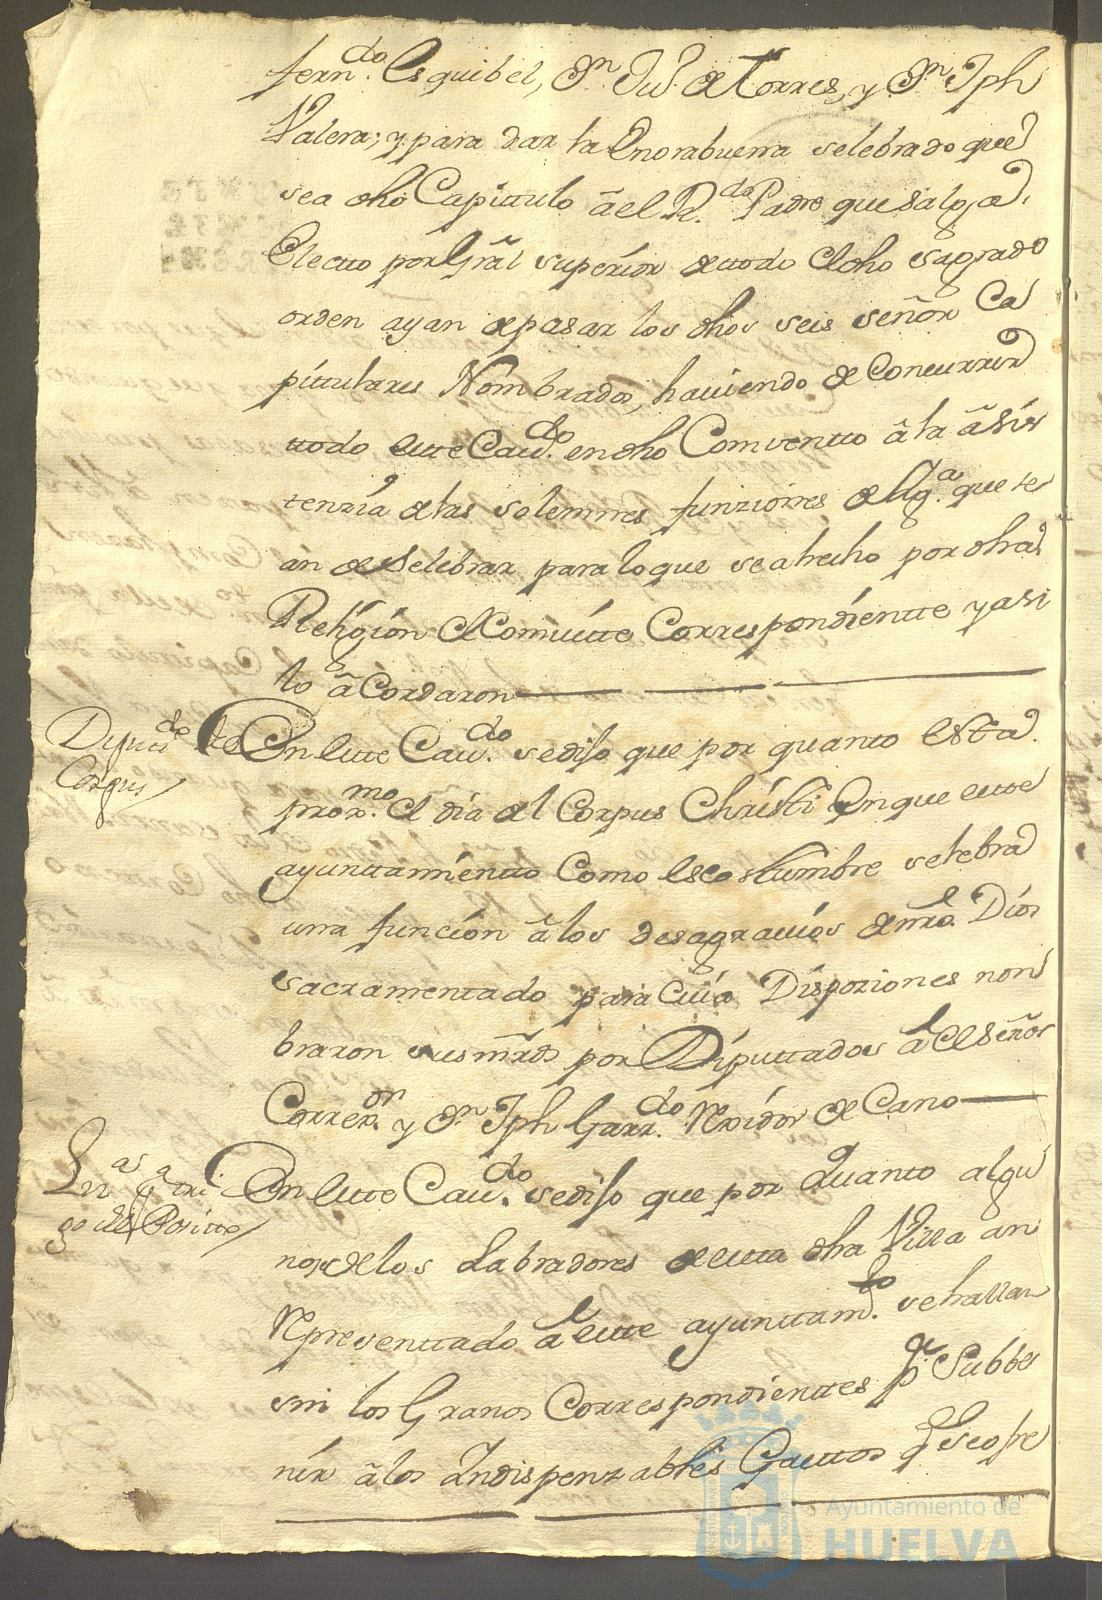 fern.do Esquibel, Dn. Ju.o de Torres, y Dn. Jph
Valera; y para dar la Enorabuena selebrado que
sea dho Capittulo â el R.do Padre que salga
Electto por Grâl superior de ttodo el dho sagrado
orden ayan de pasar los dhos seis señor Ca
pittulares Nombrados, haviendo de Concurrir
ttodo estte Cav.do en dho Comventto â la âsis
tenzia de las solemnes funziones de Ygª. que se
an de Selebrar para lo que se a hecho por dha
Religion el Comvitte Correspondientte y asi
lo âCordaron
Diputt.do de
Corpus
En estte Cav.do se diso que por quanto esta
prox.mo el dia del Corpus Christi En que estte
ayunttamientto Como es costumbre selebra
una funcion â los desagravios de nro. Dios
sacramentado para Cuia Disposiones non
braron sus mrds por Diputtados â el señor
Correx.or y Dn. Jph Garr.do Rexidor de Cano
En estte Cav.do se diso que por quanto algu
nos de los Labradores de estta dha Villa an
Representtado â estte ayunttam.to se hallan
sin los Granos Correspondienttes p.ª Subbe
nir â los Indispenzables Gasttos q. se ofre
Ayuntamiento de
HUELVA